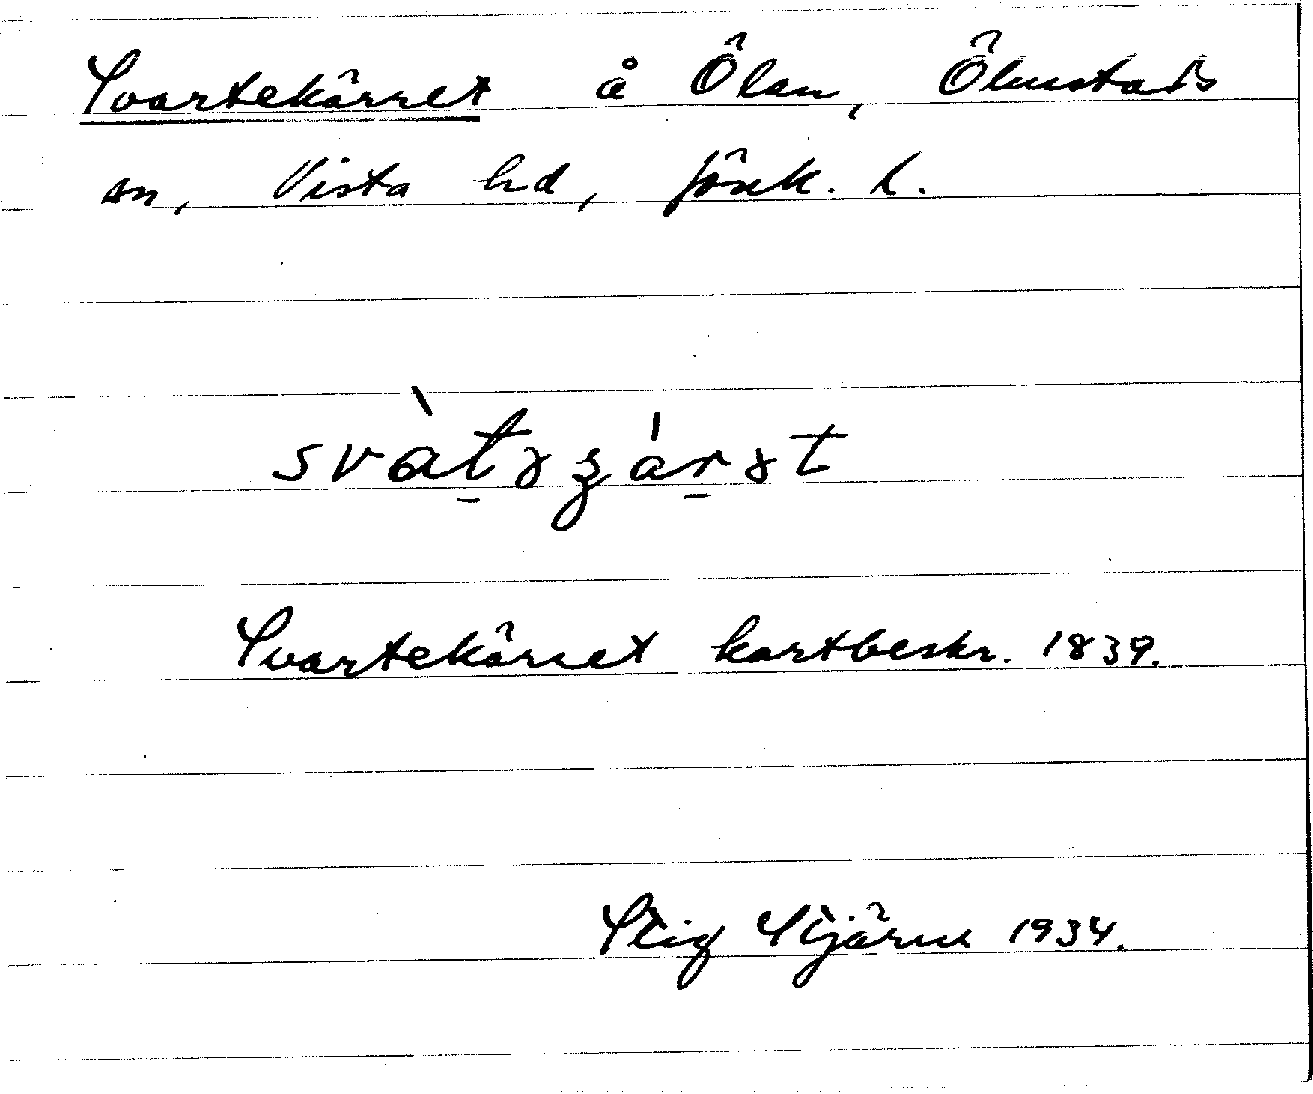 Svartekärret å Ölan, Ölmstads
sn, Vista hd, Jönk. l.
Svartekärret kartbeskr. 1839.
Stig Stjärne 1934.